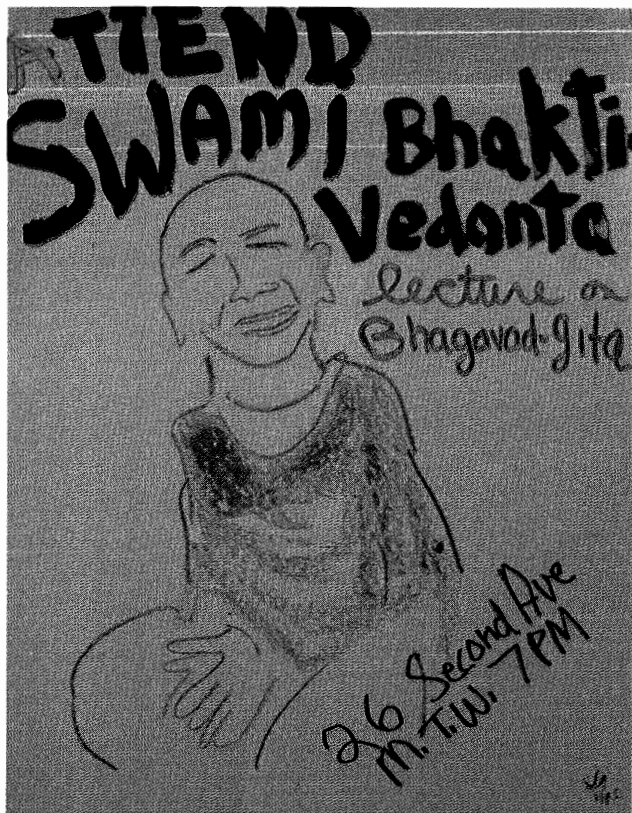 ATTEND
SWAMI Bhakti-
Vedanta
lecture on
Bhagavad-gita
26 Second Ave
M.T.W. 7PM